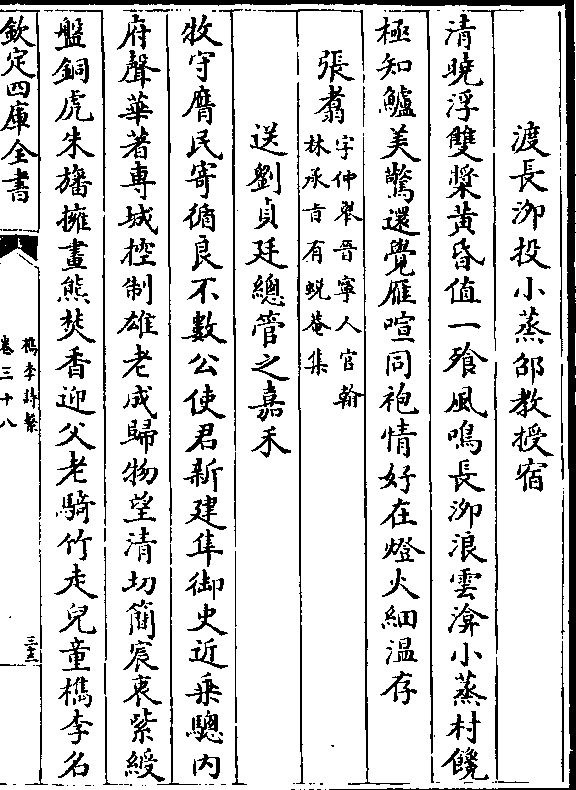 渡長泖投小蒸邵教授宿
清曉浮雙槳黄昏值一飱風鳴長泖浪雲滃小蒸村饞
極知鱸美驚還覺雁喧同袍情好在燈火細温存
張翥
字仲舉晉寧人官翰
林承㫖有蜕菴集
送劉貞廷總管之嘉禾
牧守膺民寄循良不數公使君新建隼御史近乗驄内
府聲華著専城控制雄老成歸物望清切簡宸衷紫綬
盤銅虎朱旛擁畫熊焚香迎父老騎竹走兒童檇李名
欽定四庫全書
檇李詩繫
卷三十八